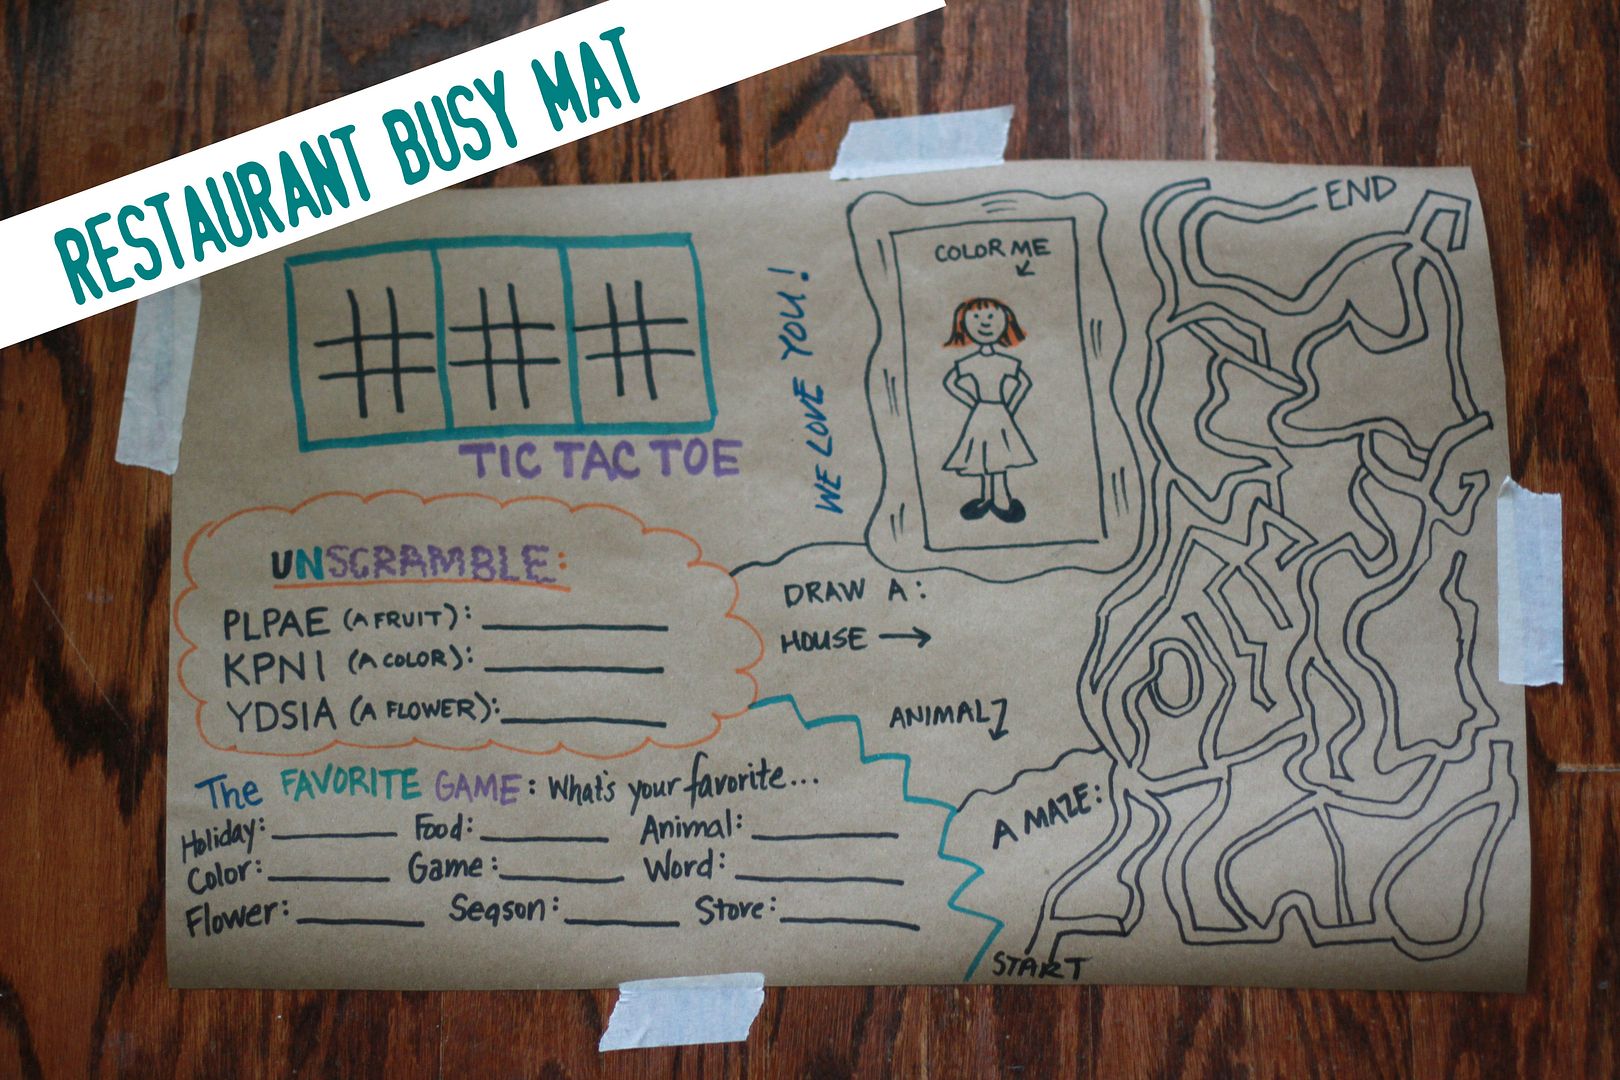 RESTAURANT BUSY MAT
TIC TAC TOE
WE LOVE YOU!
COLOR ME
END
UNSCRAMBLE:
PLPAE (A FRUIT):
KPNI (A COLOR):
YDSIA (A FLOWER):
DRAW A:
HOUSE →
ANIMAL
The FAVORITE GAME: What's your favorite...
Holiday: Food: Animal:
Color: Game: Word:
Flower: Season: Store:
A MAZE:
START